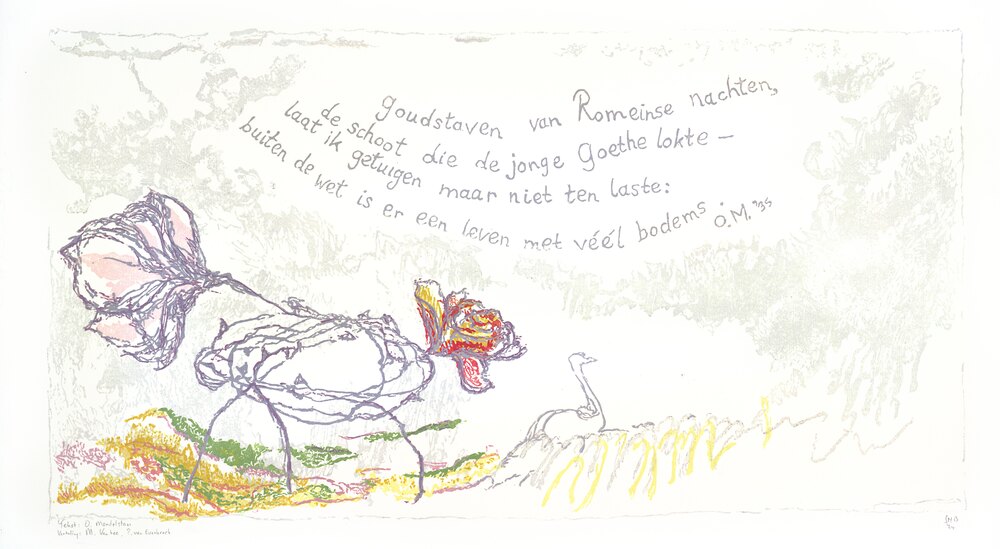 goudstaven van Romeinse nachten,
de schoot die de jonge Goethe lokte –
laat ik getuigen maar niet ten laste:
buiten de wet is er een leven met véél bodems
O.M. '35
Tekst: O. Mandelstam